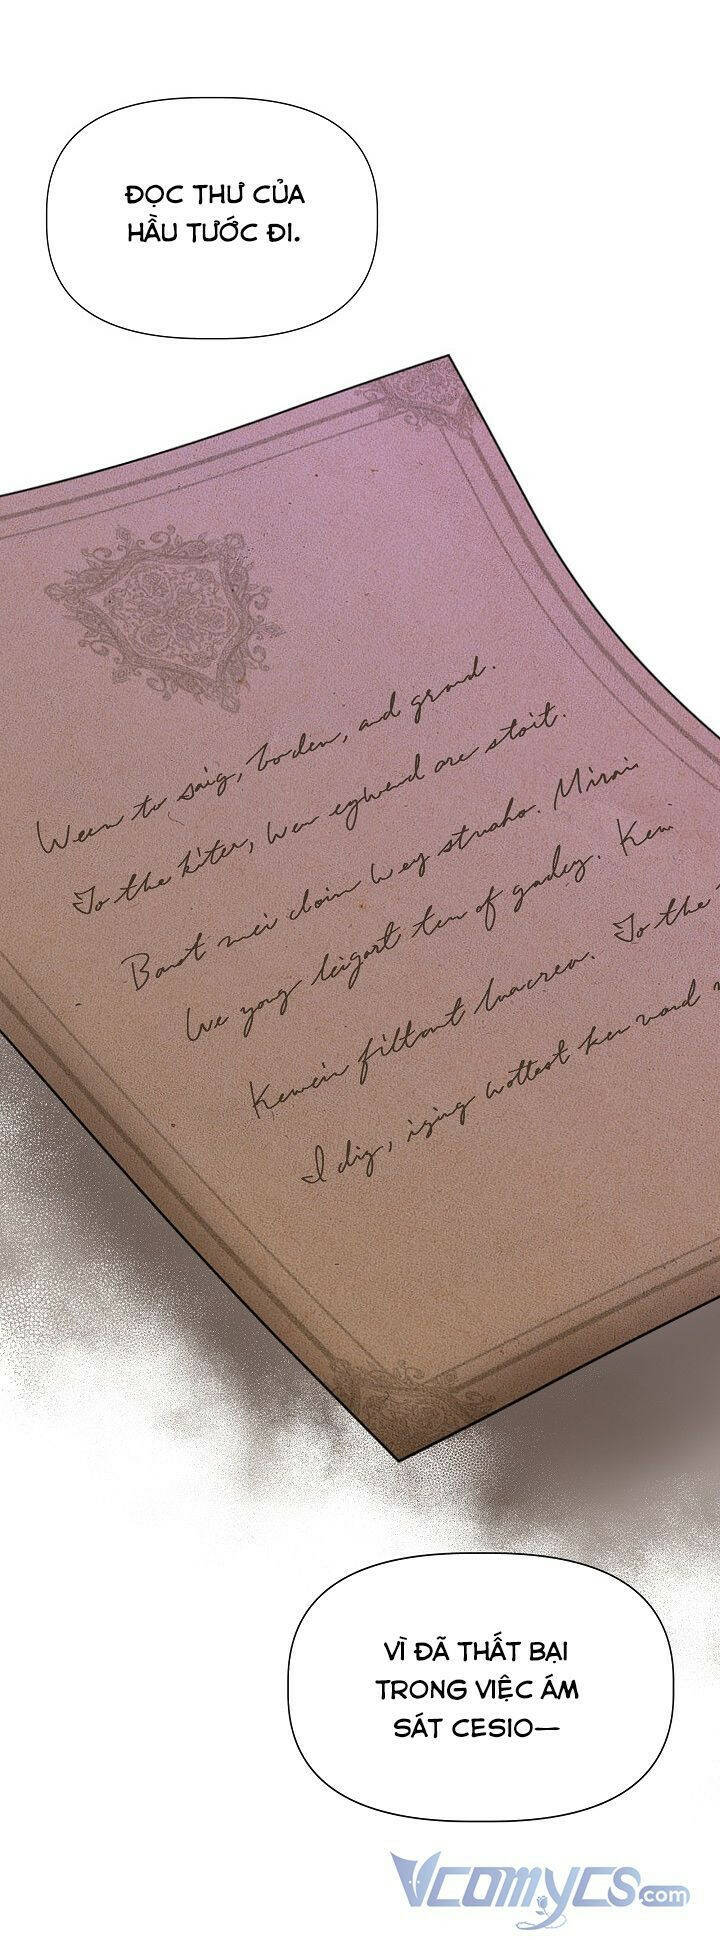 ĐỌC THƯ CỦA
HẦU TƯỚC ĐI.
Ween to saig, boden, and grond.
To the kiter, wen egwend are stoit.
Banet mei cloin wey strusho. Mirai
We yong leigart ten of gadey. Kem
Kewein filtant luacrea. To the
I dig, iging wottest ken vand
VÌ ĐÃ THẤT BẠI
TRONG VIỆC ÁM
SÁT CESIO—
VCOMYCS.com